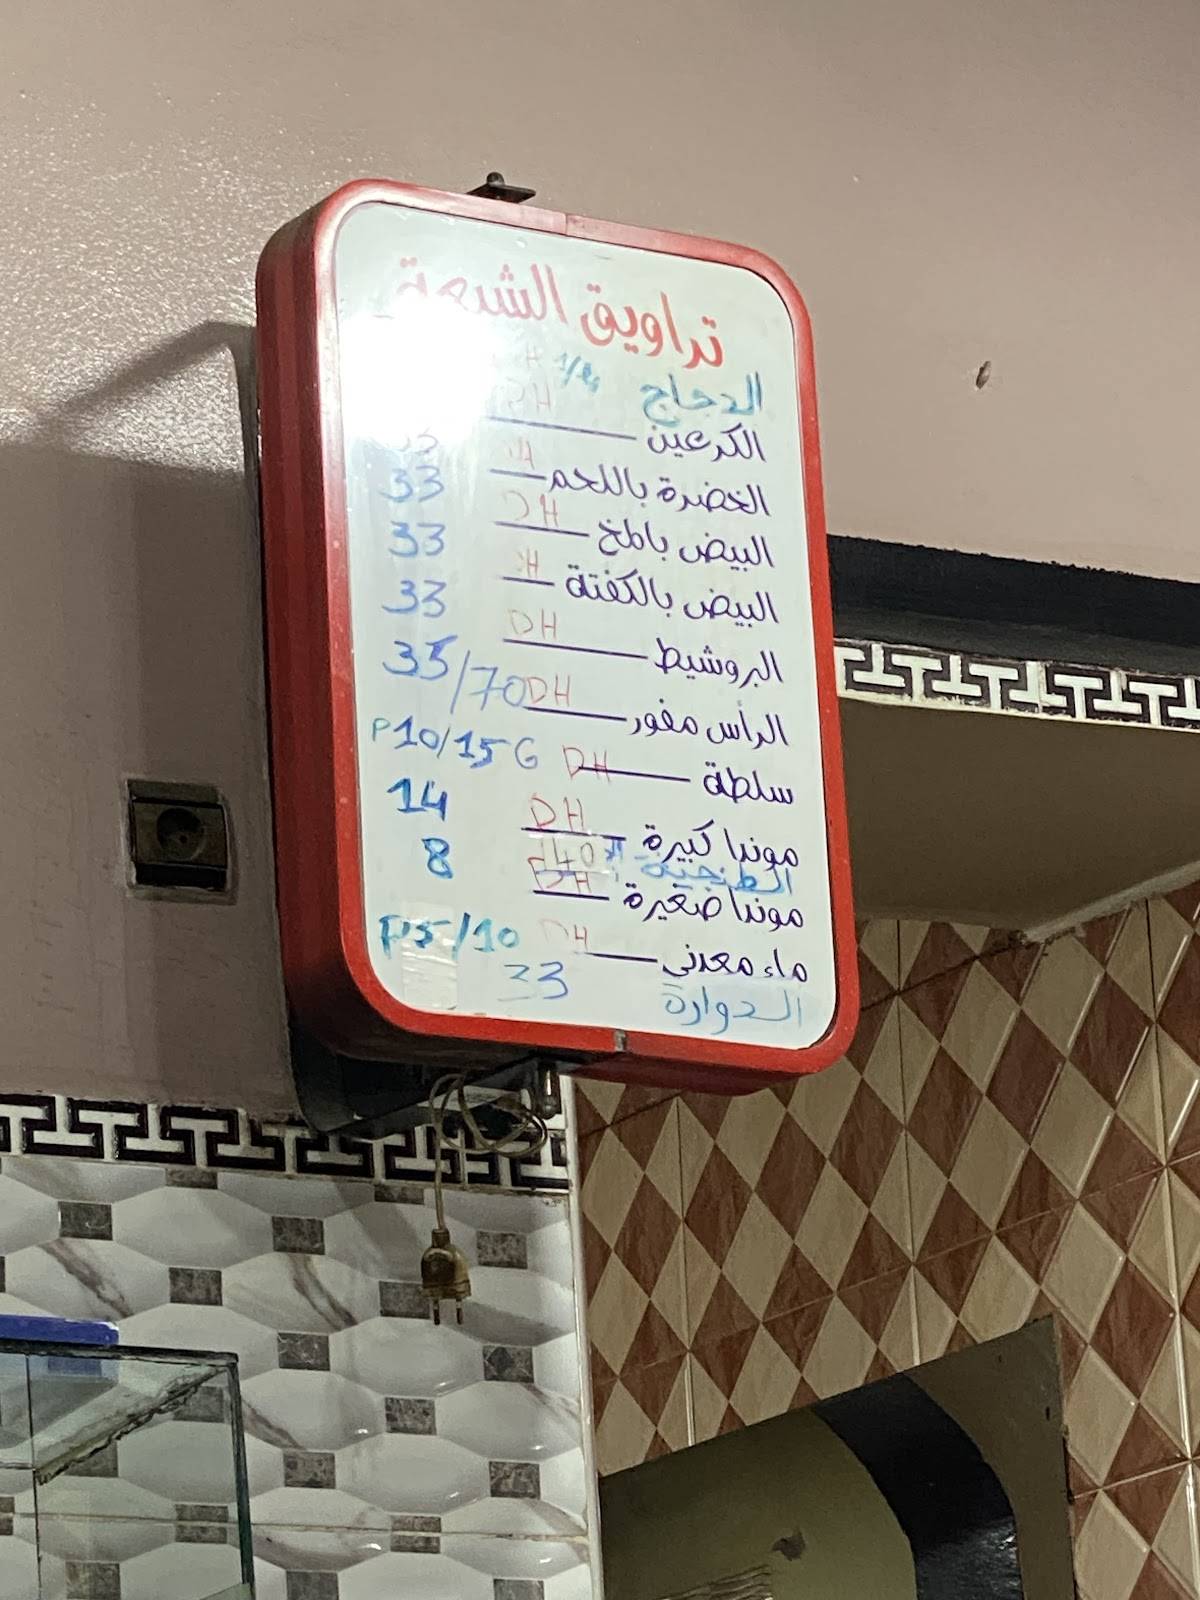 تراويق الشعبة
الدجاج 1/4 H
الكرعين DH
الخضرة باللحم 33
البيض بالمخ DH 33
البيض بالكفتة H 33
البروشيط DH 33
الرأس مفور DH 35/70
سلطة DH P10/15G
موندا كبيرة DH 14
الطنجية 140
موندا صغيرة DH 8
ماء معدني DH P5/10
الدوارة 33